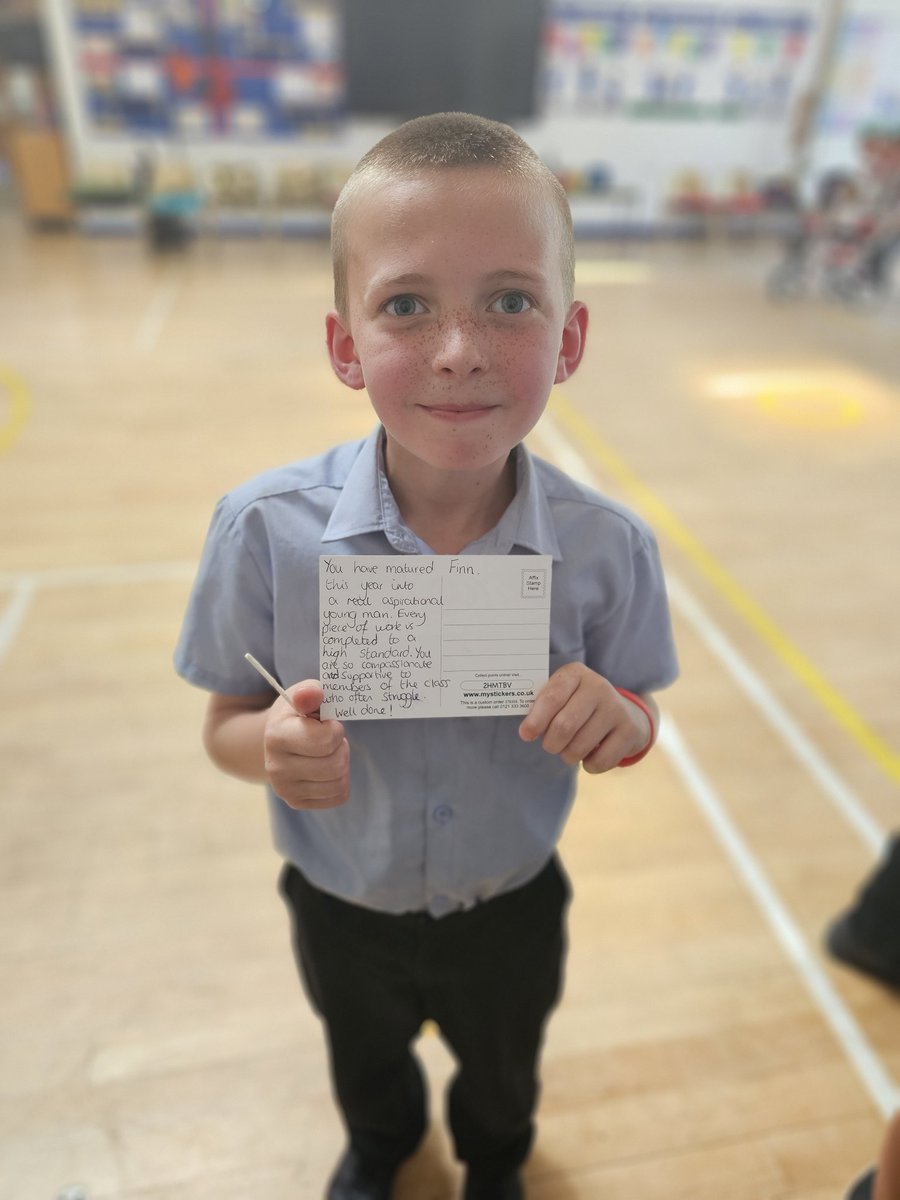 You have matured Finn.
this year into
a real aspirational
young man. Every
piece of work is
completed to a
high standard. You
are so compassionate
and supportive to
members of the class
who often struggle.
Well done!
Affix
Stamp
Here
Collect points online! Visit..
2HMTBV
www.mystickers.co.uk
This is a custom order To order
more please call 0121 333 3600